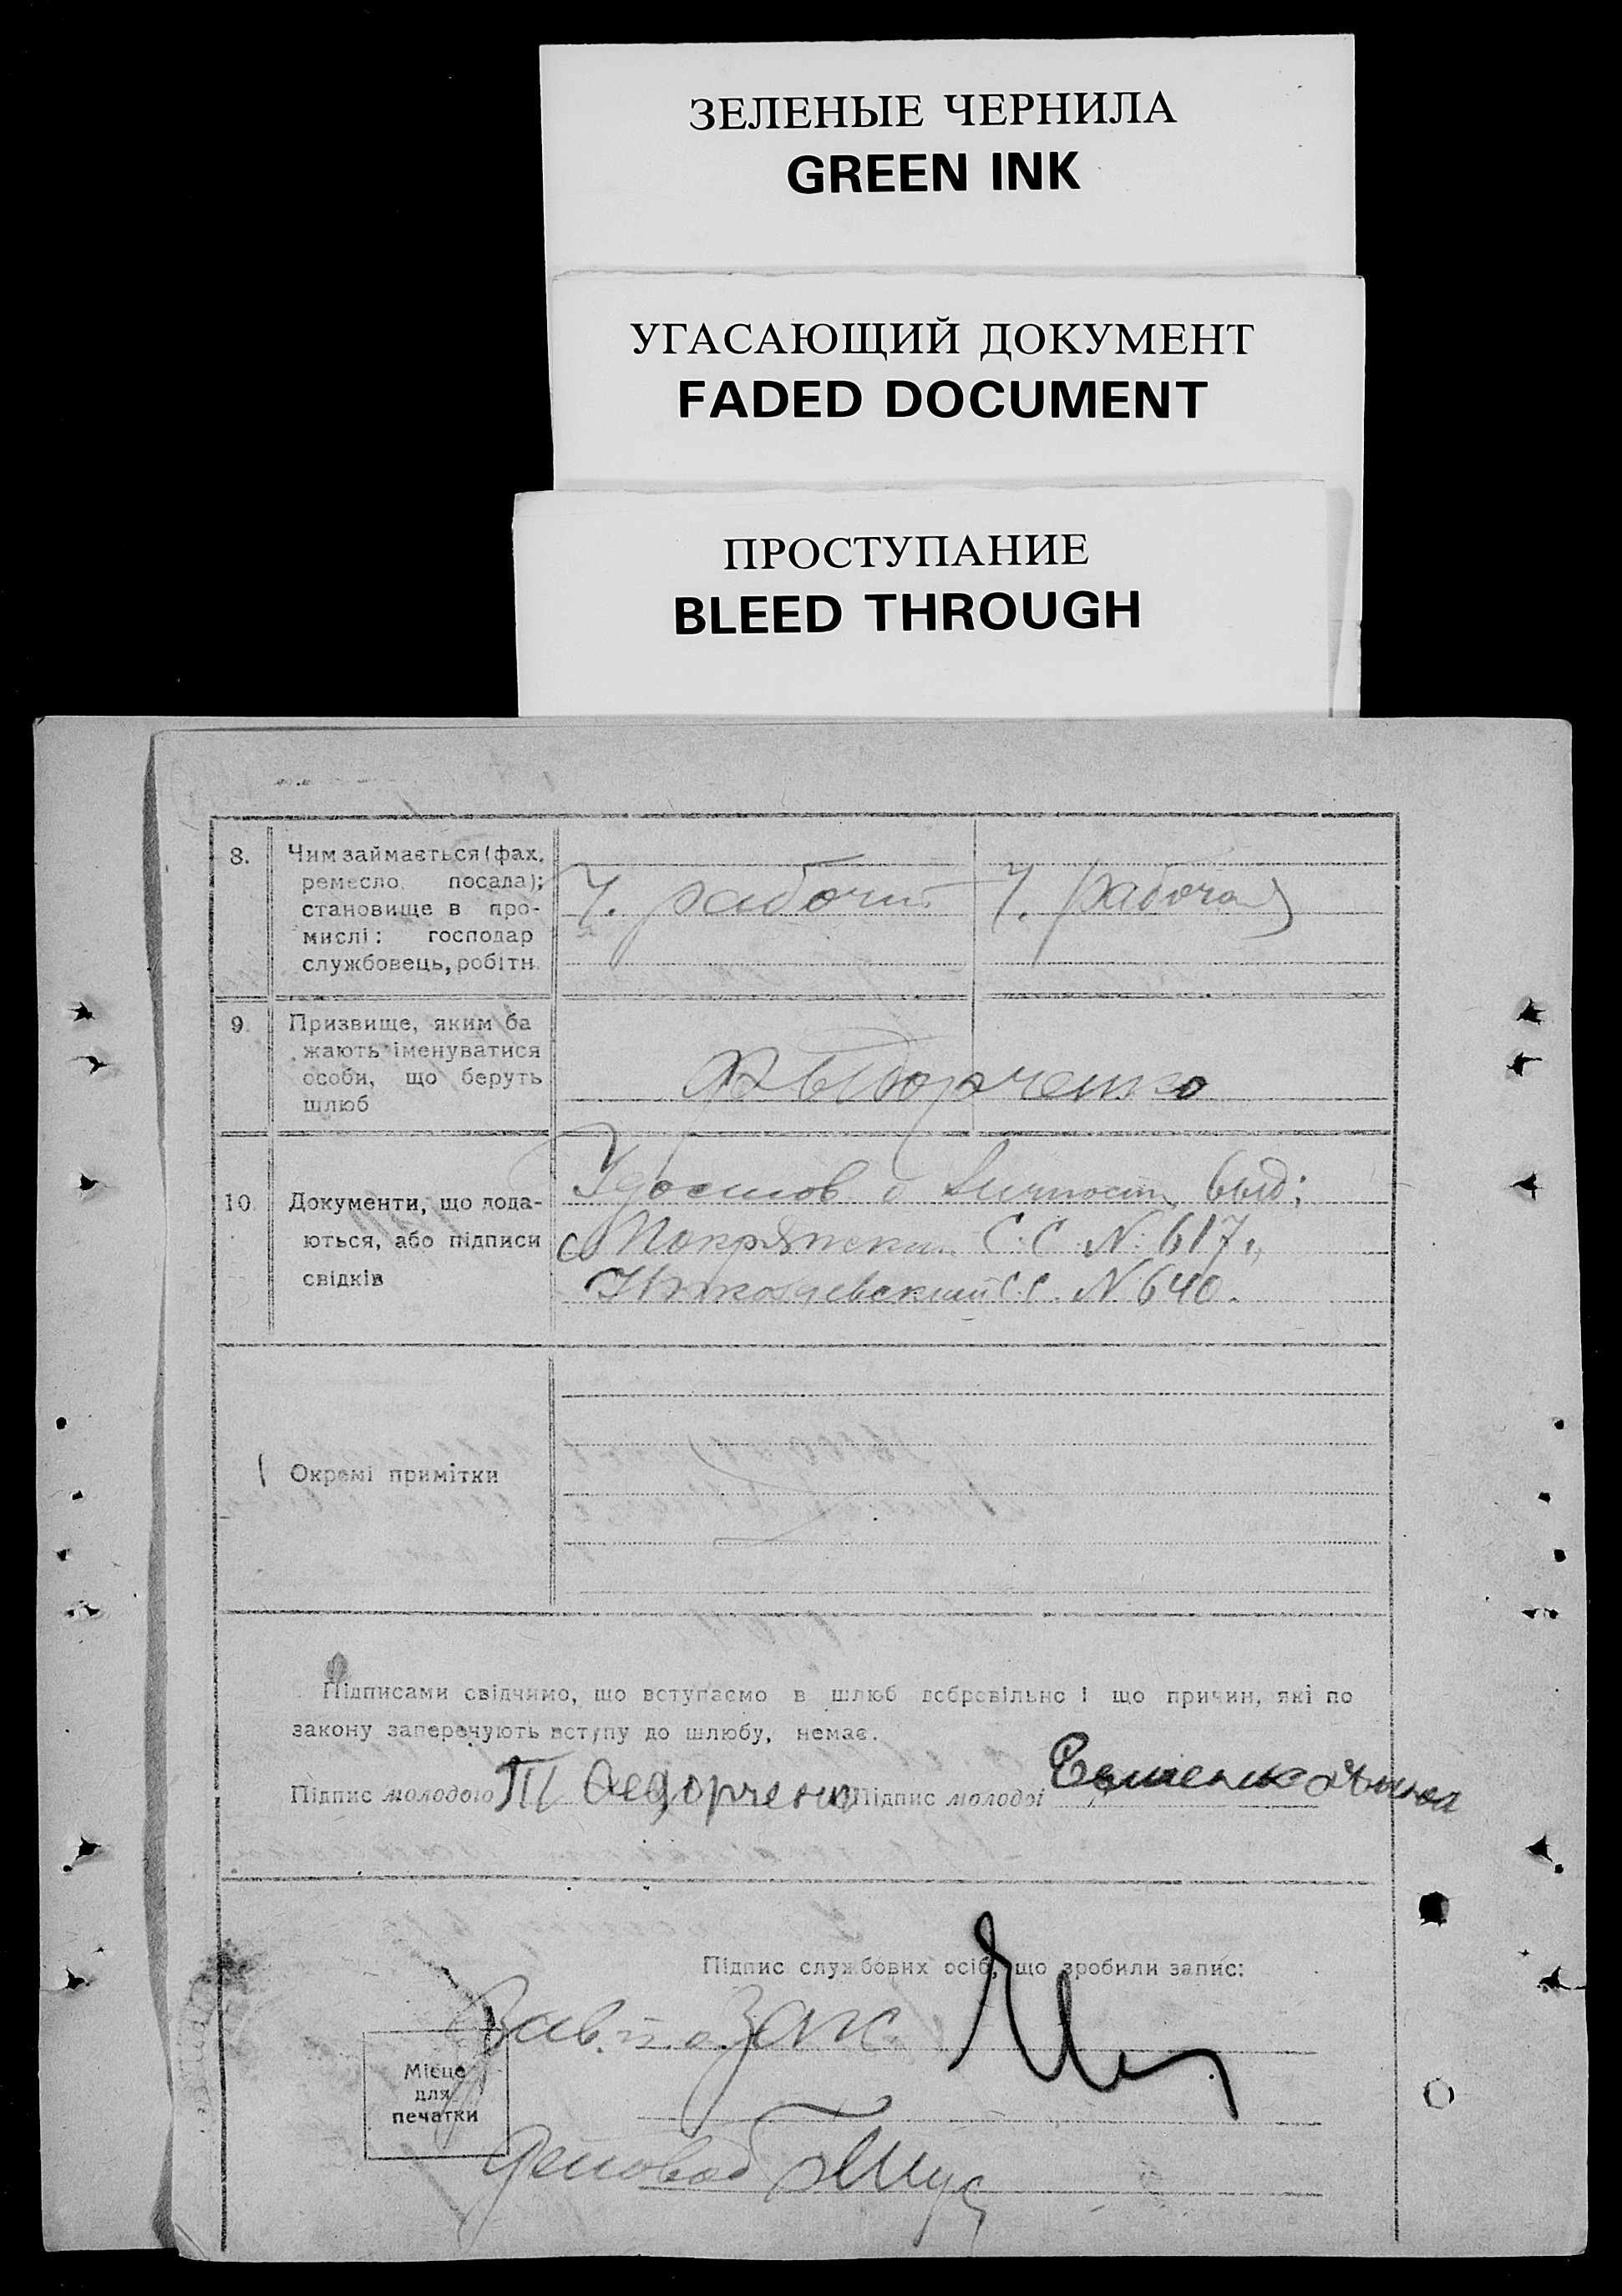 ЗЕЛЕНЫЕ ЧЕРНИЛА
GREEN INK
УГАСАЮЩИЙ ДОКУМЕНТ
FADED DOCUMENT
ПРОСТУПАНИЕ
BLEED THROUGH
8.
Чим займається (фах,
ремесло посада);
становище в про-
мислі: господар
службовець, робітн.
Ч. рабочий
Ч. рабочая
9.
Призвище, яким ба
жають іменуватися
особи, що беруть
шлюб
10.
Документи, що дода-
ються, або підписи
свідків
Удостов о личности выд;
С.С. N: 617.,
С.С. N 640.
Окремі примітки
Підписами свідчимо, що вступаємо в шлюб добровільно і що причин, які по
закону заперечують вступу до шлюбу, немає.
Підпис молодого Федорченко Підпис молодої
Підпис службових осіб, що зробили запис:
Зав. Загс
Місце
для
печатки